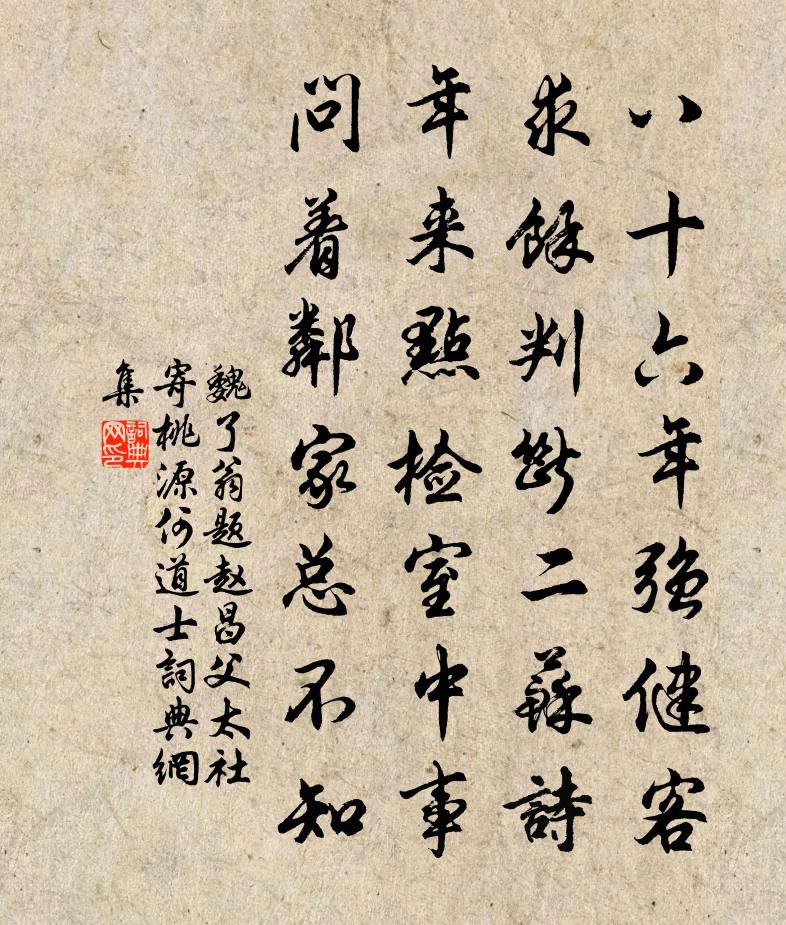 八十六年强健客
求餘判斷二蘇詩
年来點检室中事
問着鄰家总不知
魏了翁题赵昌父太社
寄桃源何道士詞典網
集
詞典网印